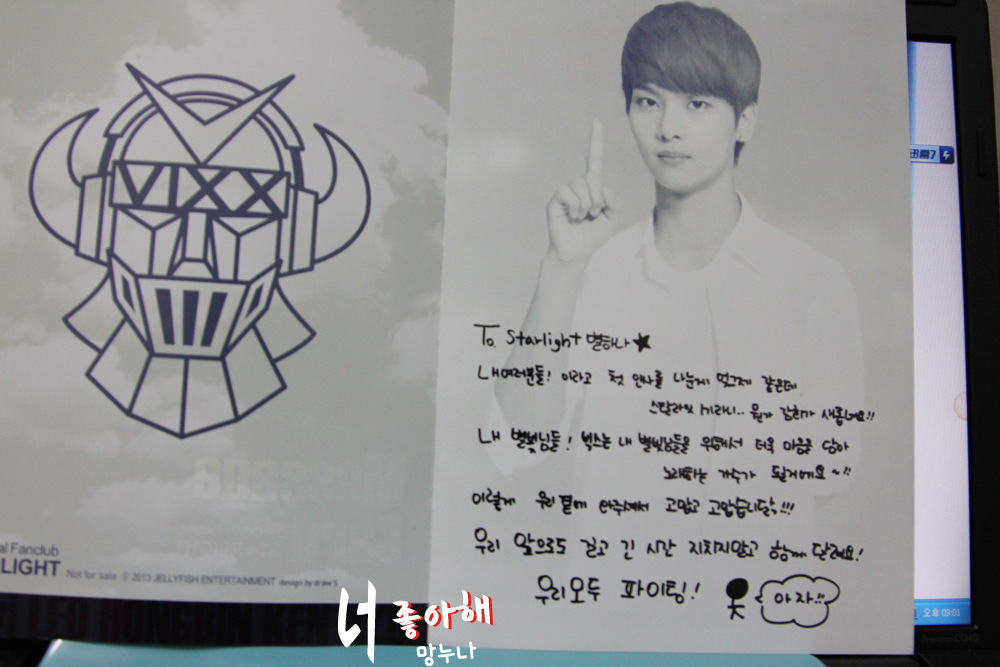 VIXX
al Fanclub
LIGHT Not for sale ⓒ 2013 JELLYFISH ENTERTAINMENT design by draw S
To. Starlight 별하나★
내여러분들! 이라고 첫 인사를 나눈게 엊그제 같은데
스탈라잇 1기라니.. 뭔가 감회가 새롭네요!!
내 별빛님들! 빅스는 내 별빛님들을 위해서 더욱 마음을 담아
노래하는 가수가 될거에요~!!
이렇게 우리 곁에 와주셔서 고맙고 고맙습니닼!!!
우리 앞으로도 길고 긴 시간 지치지말고 함께 달려요!
우리모두 파이팅!
아자!!
迅雷7
오후 09:01
너 좋아해
망누나